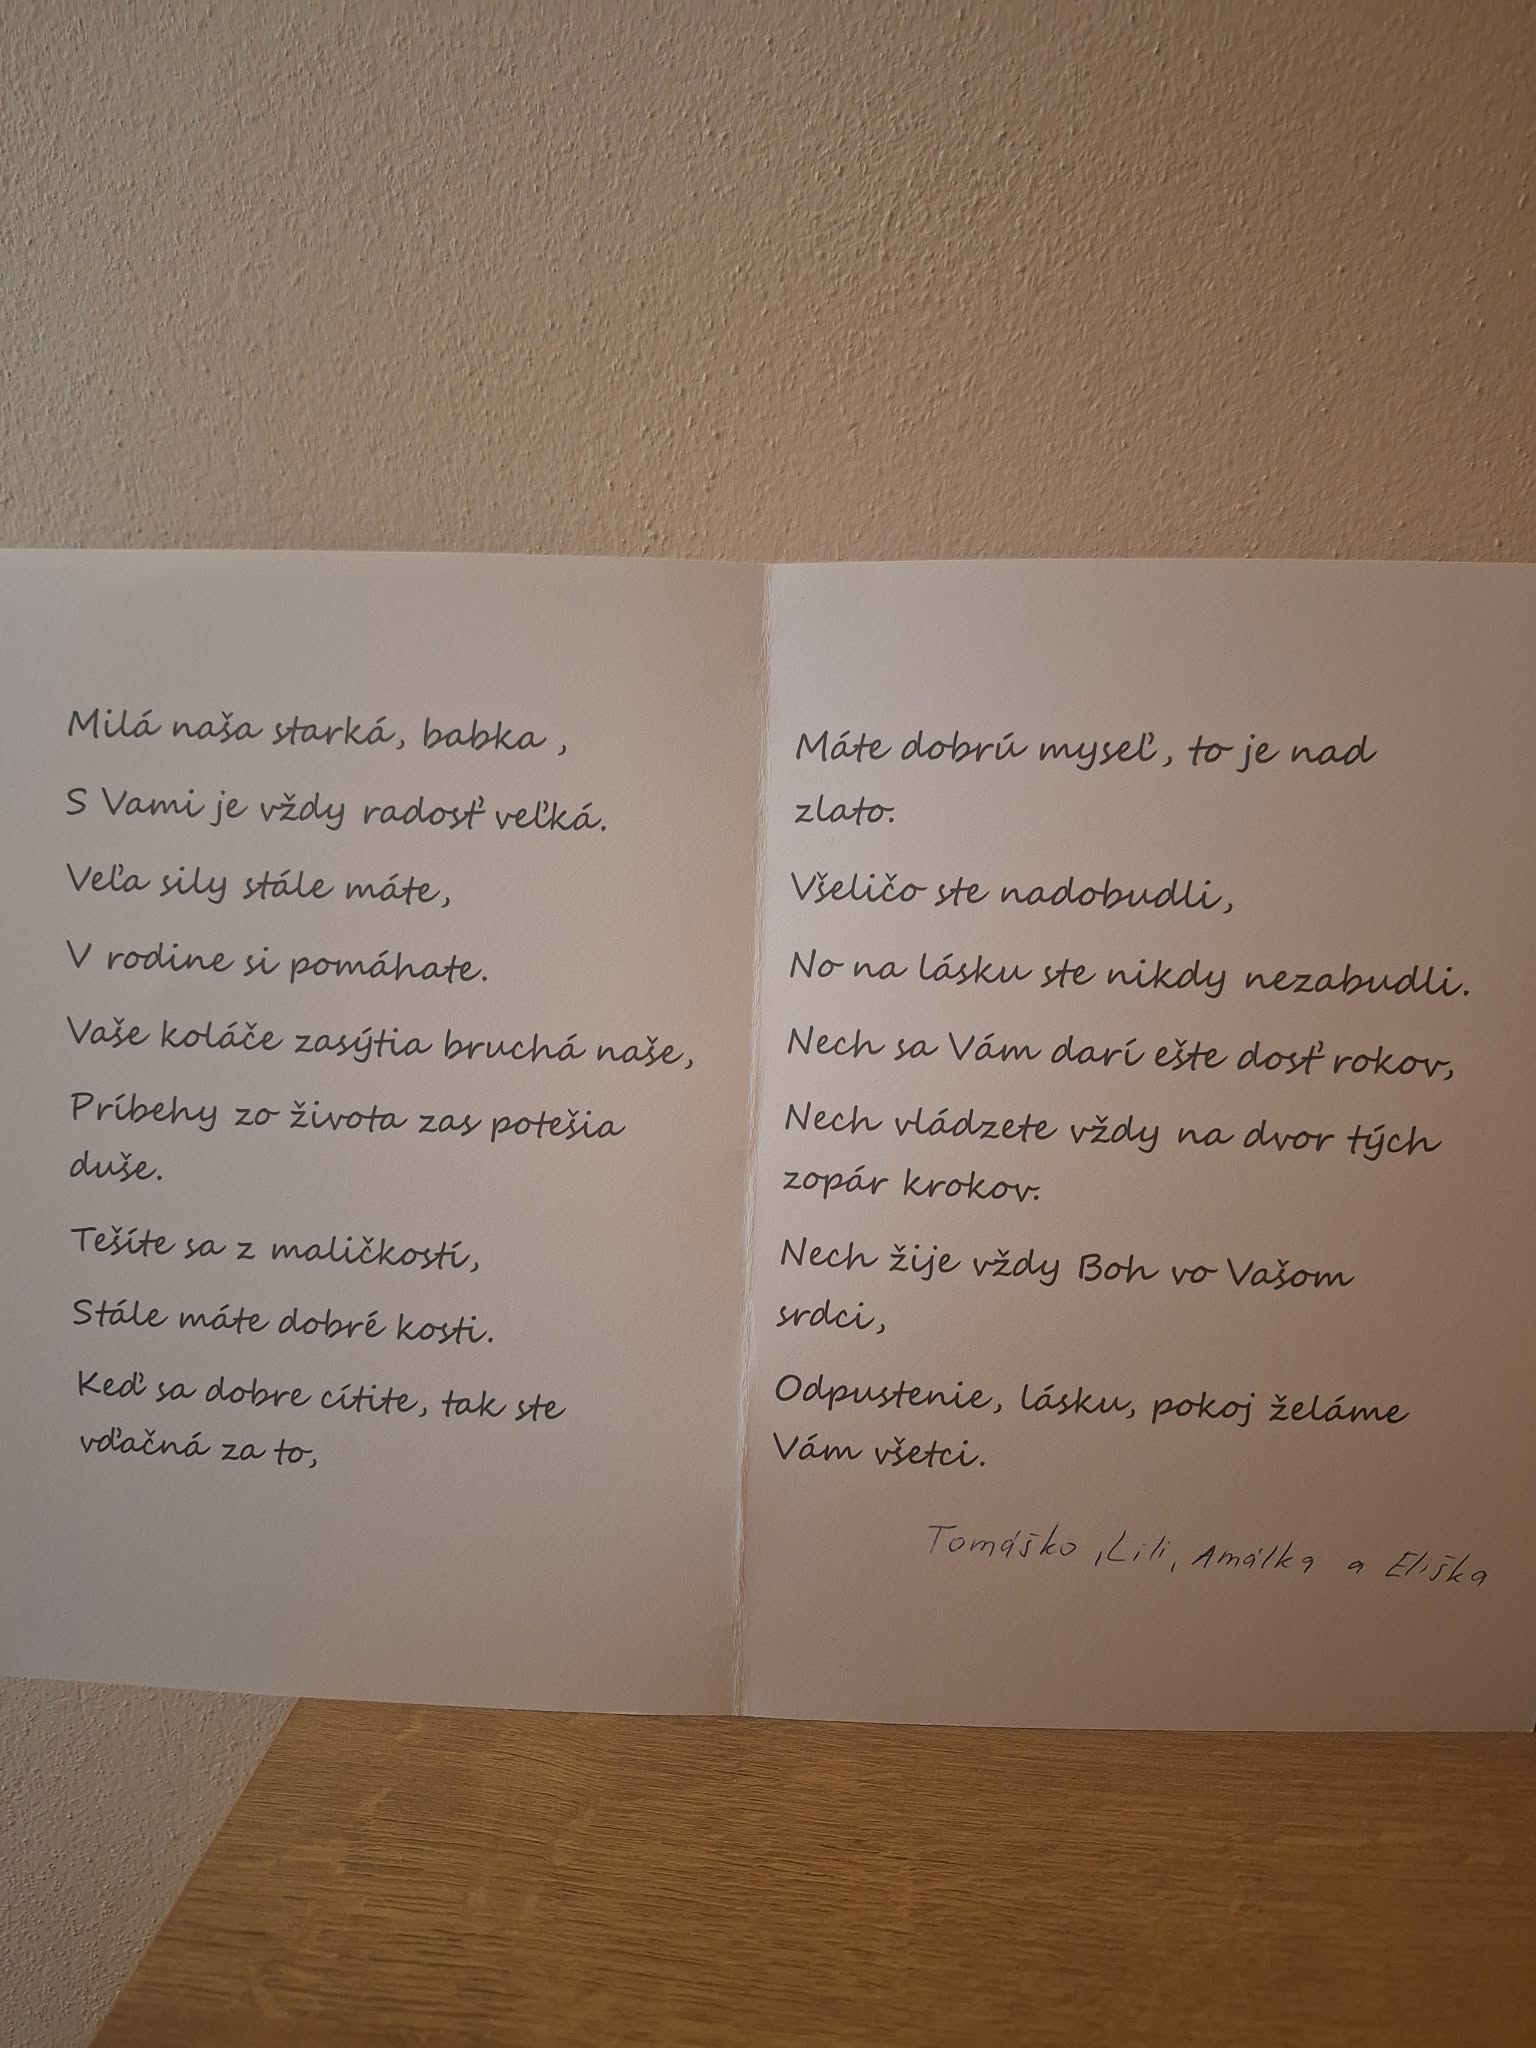 Milá naša starká, babka ,
S Vami je vždy radosť veľká.
Veľa sily stále máte,
V rodine si pomáhate.
Vaše koláče zasýtia bruchá naše,
Príbehy zo života zas potešia
duše.
Tešíte sa z maličkostí,
Stále máte dobré kosti.
Keď sa dobre cítite, tak ste
vďačná za to,
Máte dobrú myseľ, to je nad
zlato.
Všeličo ste nadobudli,
No na lásku ste nikdy nezabudli.
Nech sa Vám darí ešte dosť rokov,
Nech vládzete vždy na dvor tých
zopár krokov.
Nech žije vždy Boh vo Vašom
srdci,
Odpustenie, lásku, pokoj želáme
Vám všetci.
Tomáško, Lili, Amálka a Eliška